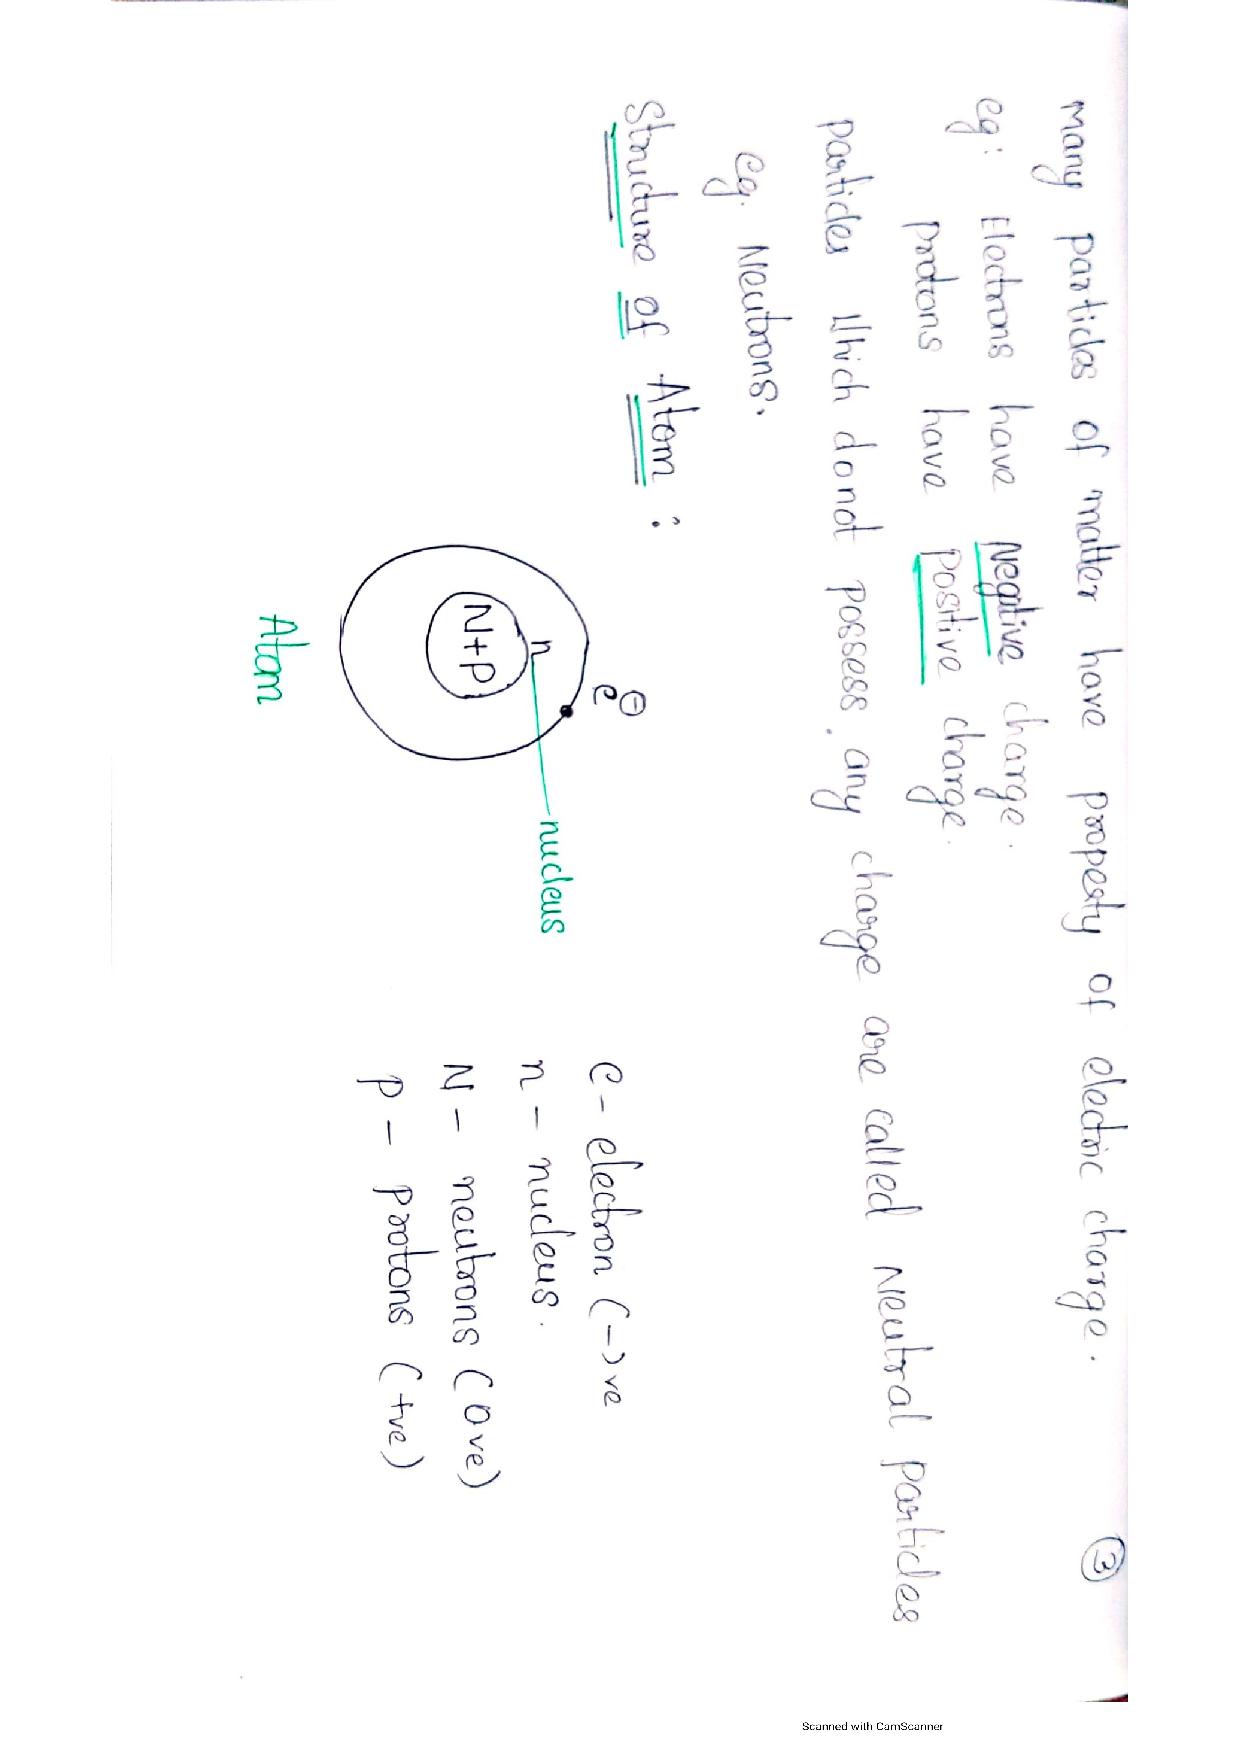 Many particles of matter have property of electric charge. ③
eg: Electrons have Negative charge.
protons have positive charge.
particles Which do not possess any charge are called Neutral particles
eg. Neutrons.
Structure of Atom :
e⊖
n
nucleus
N+P
Atom
e - electron (-)ve
n - nucleus.
N - neutrons (0ve)
P - protons (+ve)
Scanned with CamScanner